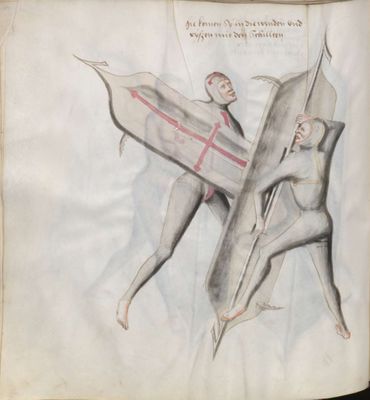 hie komen sy in die winden vnd
ryssen mit den Schilten